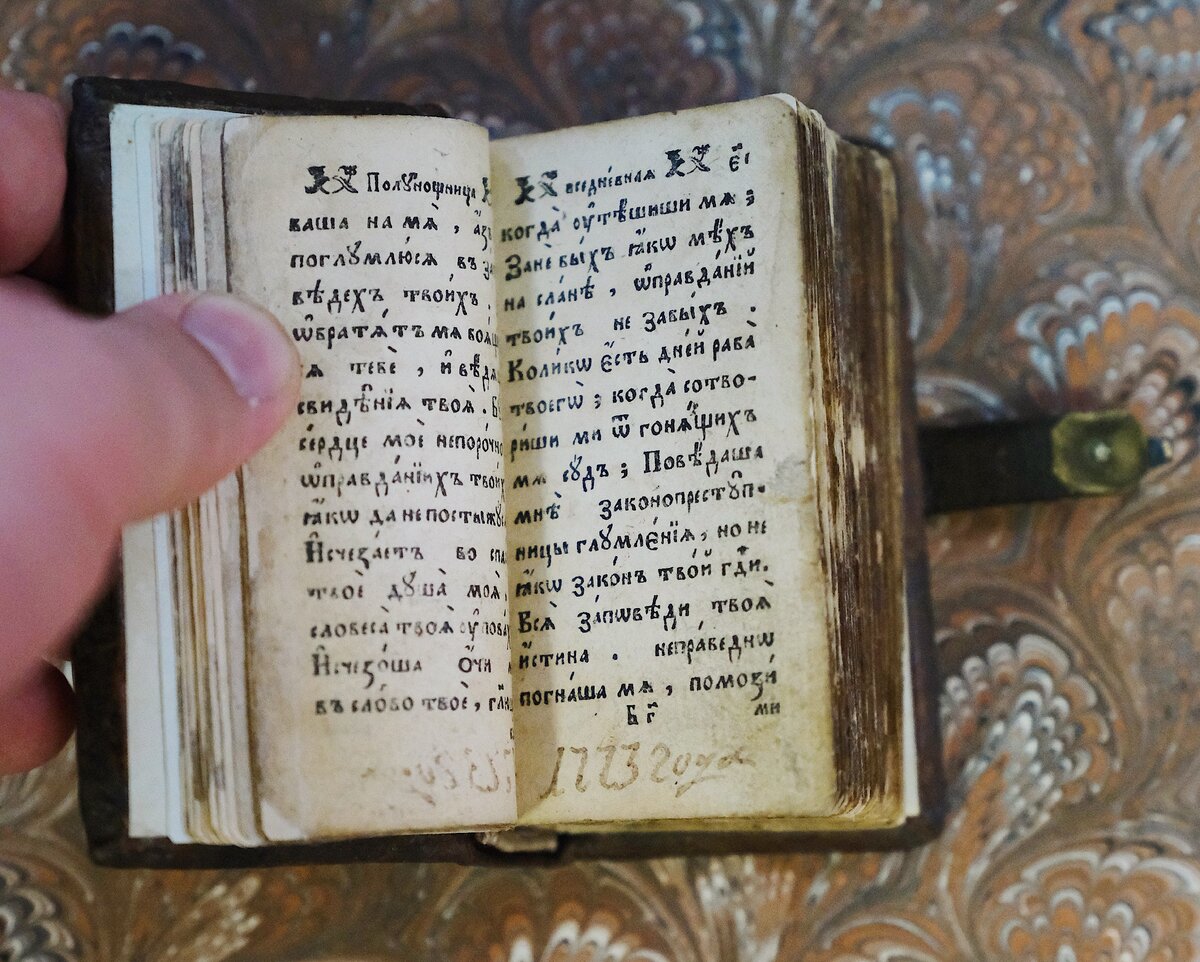 Полꙋнощница
ваша на мѧ̀ , а҆зъ
поглꙋмлю́сѧ въ за
вѣдехъ твои́хъ .
ѡ҆братѧ́тъ мѧ боѧ́щ
сѧ тебѐ , и҆ вѣ́дѧ
свидѣ̑нїѧ твоѧ̀ . Бꙋ
се́рдце моѐ непоро́чно
ѡ҆правда́нїихъ твои́хъ
ꙗ҆́кѡ да не постыжꙋ
И҆счеза́етъ во спа
твоѐ дꙋша̀ моѧ̀ ,
словеса̀ твоѧ̀ ᲂу҆пова
И҆счезо́ша ѻ҆́чи
въ сло́во твоѐ , гл҃ю
вседне́внаѧ є҃і
когда̀ ᲂу҆тѣ́шиши мѧ ;
Занѐ бы́хъ ꙗ҆́кѡ мѣ́хъ
на сла́нѣ , ѡ҆правда́нїй
твои́хъ не забы́хъ .
Коли́кѡ є҆́сть дне́й раба̀
твоегѡ̀ ; когда̀ сотво-
ри́ши ми ѿ гонѧ́щихъ
мѧ сꙋ́дъ ; Повѣ́даша
мнѣ̀ законопрестꙋ́п-
ницы глꙋмле́нїѧ , но не
ꙗ҆́кѡ зако́нъ тво́й гд҇и.
Всѧ̑ за́пѡвѣди твоѧ̑
и҆́стина . непра́веднѡ
погна́ша мѧ , помози́
Б г҃ ми
1773 года